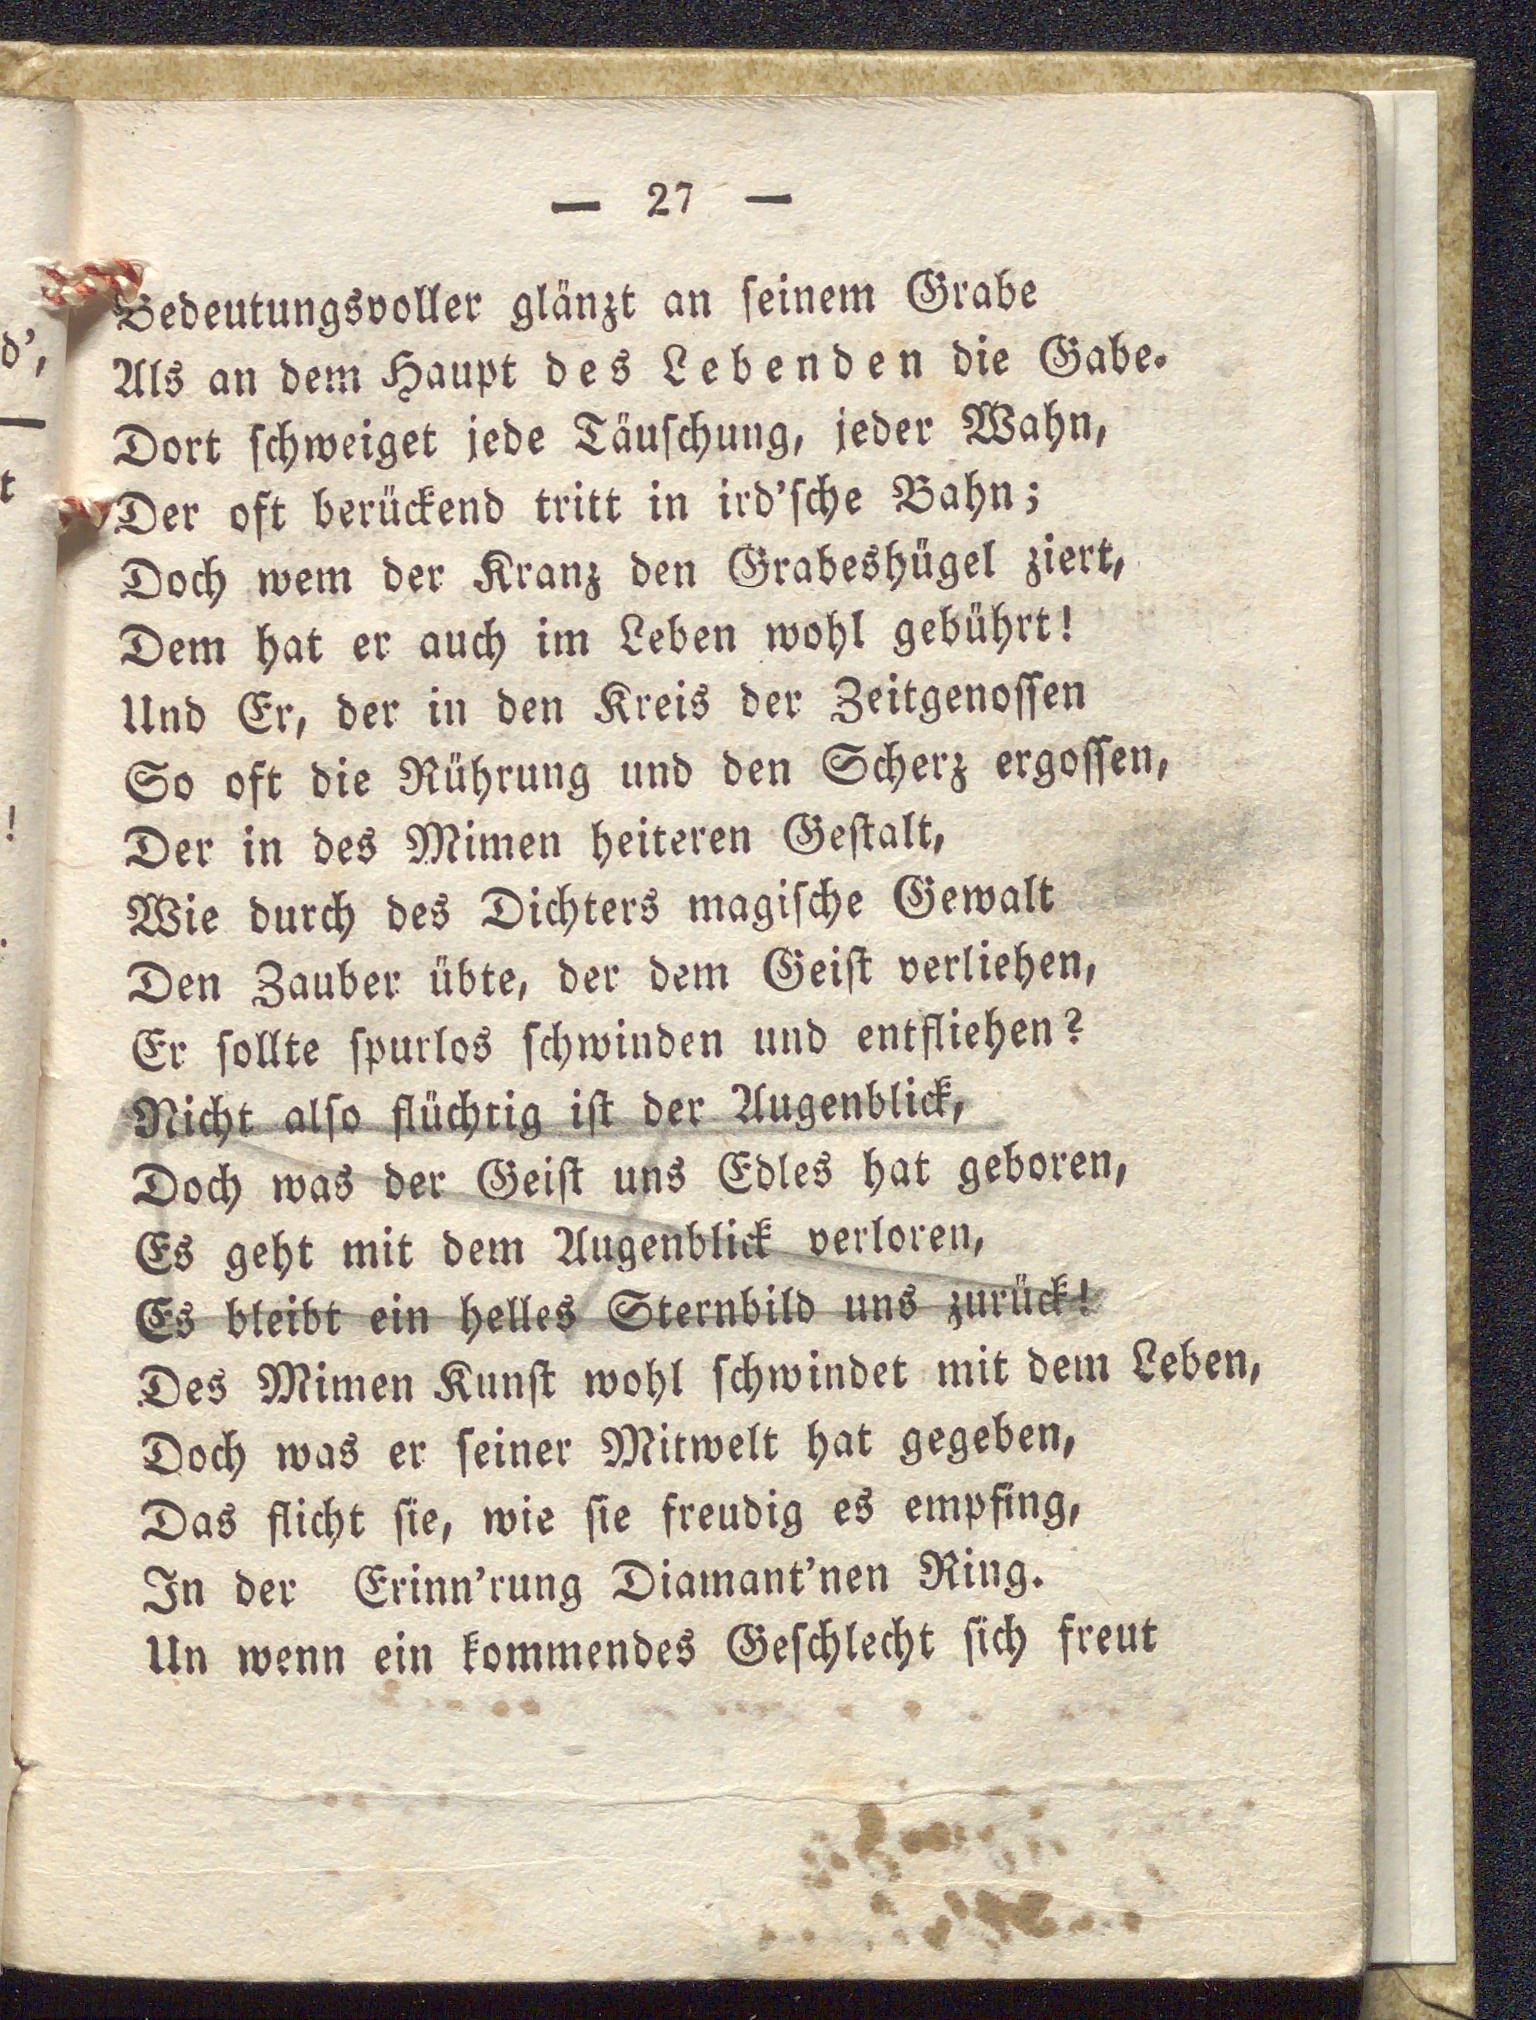 — 27 —
Bedeutungsvoller glänzt an ſeinem Grabe
Als an dem Haupt des Lebenden die Gabe.
Dort ſchweiget jede Täuſchung, jeder Wahn,
Der oft berückend tritt in ird'ſche Bahn;
Doch wem der Kranz den Grabeshügel ziert,
Dem hat er auch im Leben wohl gebührt!
Und Er, der in den Kreis der Zeitgenoſſen
So oft die Rührung und den Scherz ergoſſen,
Der in des Mimen heiteren Geſtalt,
Wie durch des Dichters magiſche Gewalt
Den Zauber übte, der dem Geiſt verliehen,
Er ſollte ſpurlos ſchwinden und entfliehen?
Nicht alſo flüchtig iſt der Augenblick,
Doch was der Geiſt uns Edles hat geboren,
Es geht mit dem Augenblick verloren,
Es bleibt ein helles Sternbild uns zurück!
Des Mimen Kunſt wohl ſchwindet mit dem Leben,
Doch was er ſeiner Mitwelt hat gegeben,
Das flicht ſie, wie ſie freudig es empfing,
In der Erinn'rung Diamant'nen Ring.
Un wenn ein kommendes Geſchlecht ſich freut